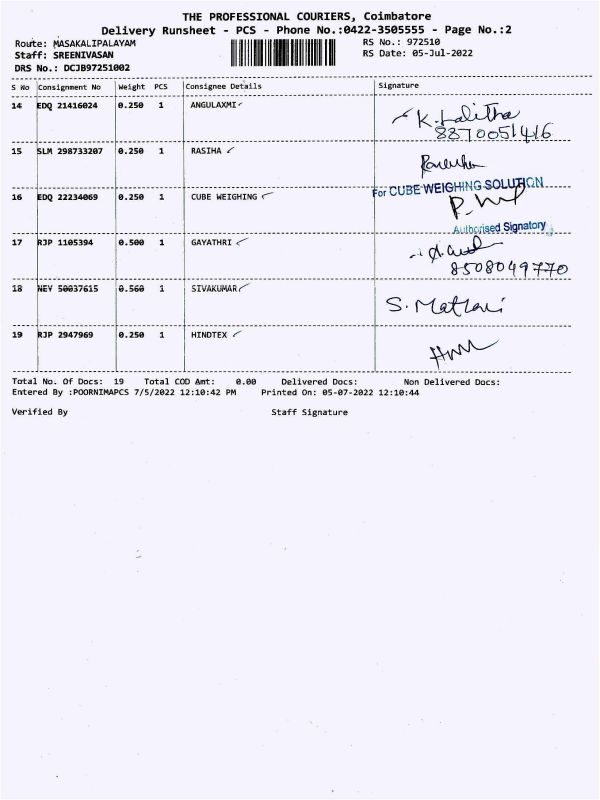 THE PROFESSIONAL COURIERS, Coimbatore
Delivery Runsheet - PCS - Phone No.:0422-3505555 - Page No.:2
Route: MASAKALIPALAYAM
RS No.: 972510
Staff: SREENIVASAN
RS Date: 05-Jul-2022
DRS No.: DCJB97251002
S No Consignment No Weight PCS Consignee Details Signature
14 EDQ 21416024 0.250 1 ANGULAXMI K. Lalitha
8870051416
15 SLM 298733207 0.250 1 RASIHA
For CUBE WEIGHING SOLUTION
16 EDQ 22234069 0.250 1 CUBE WEIGHING
Authorised Signatory
17 RJP 1105394 0.500 1 GAYATHRI
8508049770
18 NEY 50037615 0.560 1 SIVAKUMAR S.
19 RJP 2947969 0.250 1 HINDTEX
Total No. Of Docs: 19 Total COD Amt: 0.00 Delivered Docs: Non Delivered Docs:
Entered By :POORNIMAPCS 7/5/2022 12:10:42 PM Printed On: 05-07-2022 12:10:44
Verified By Staff Signature